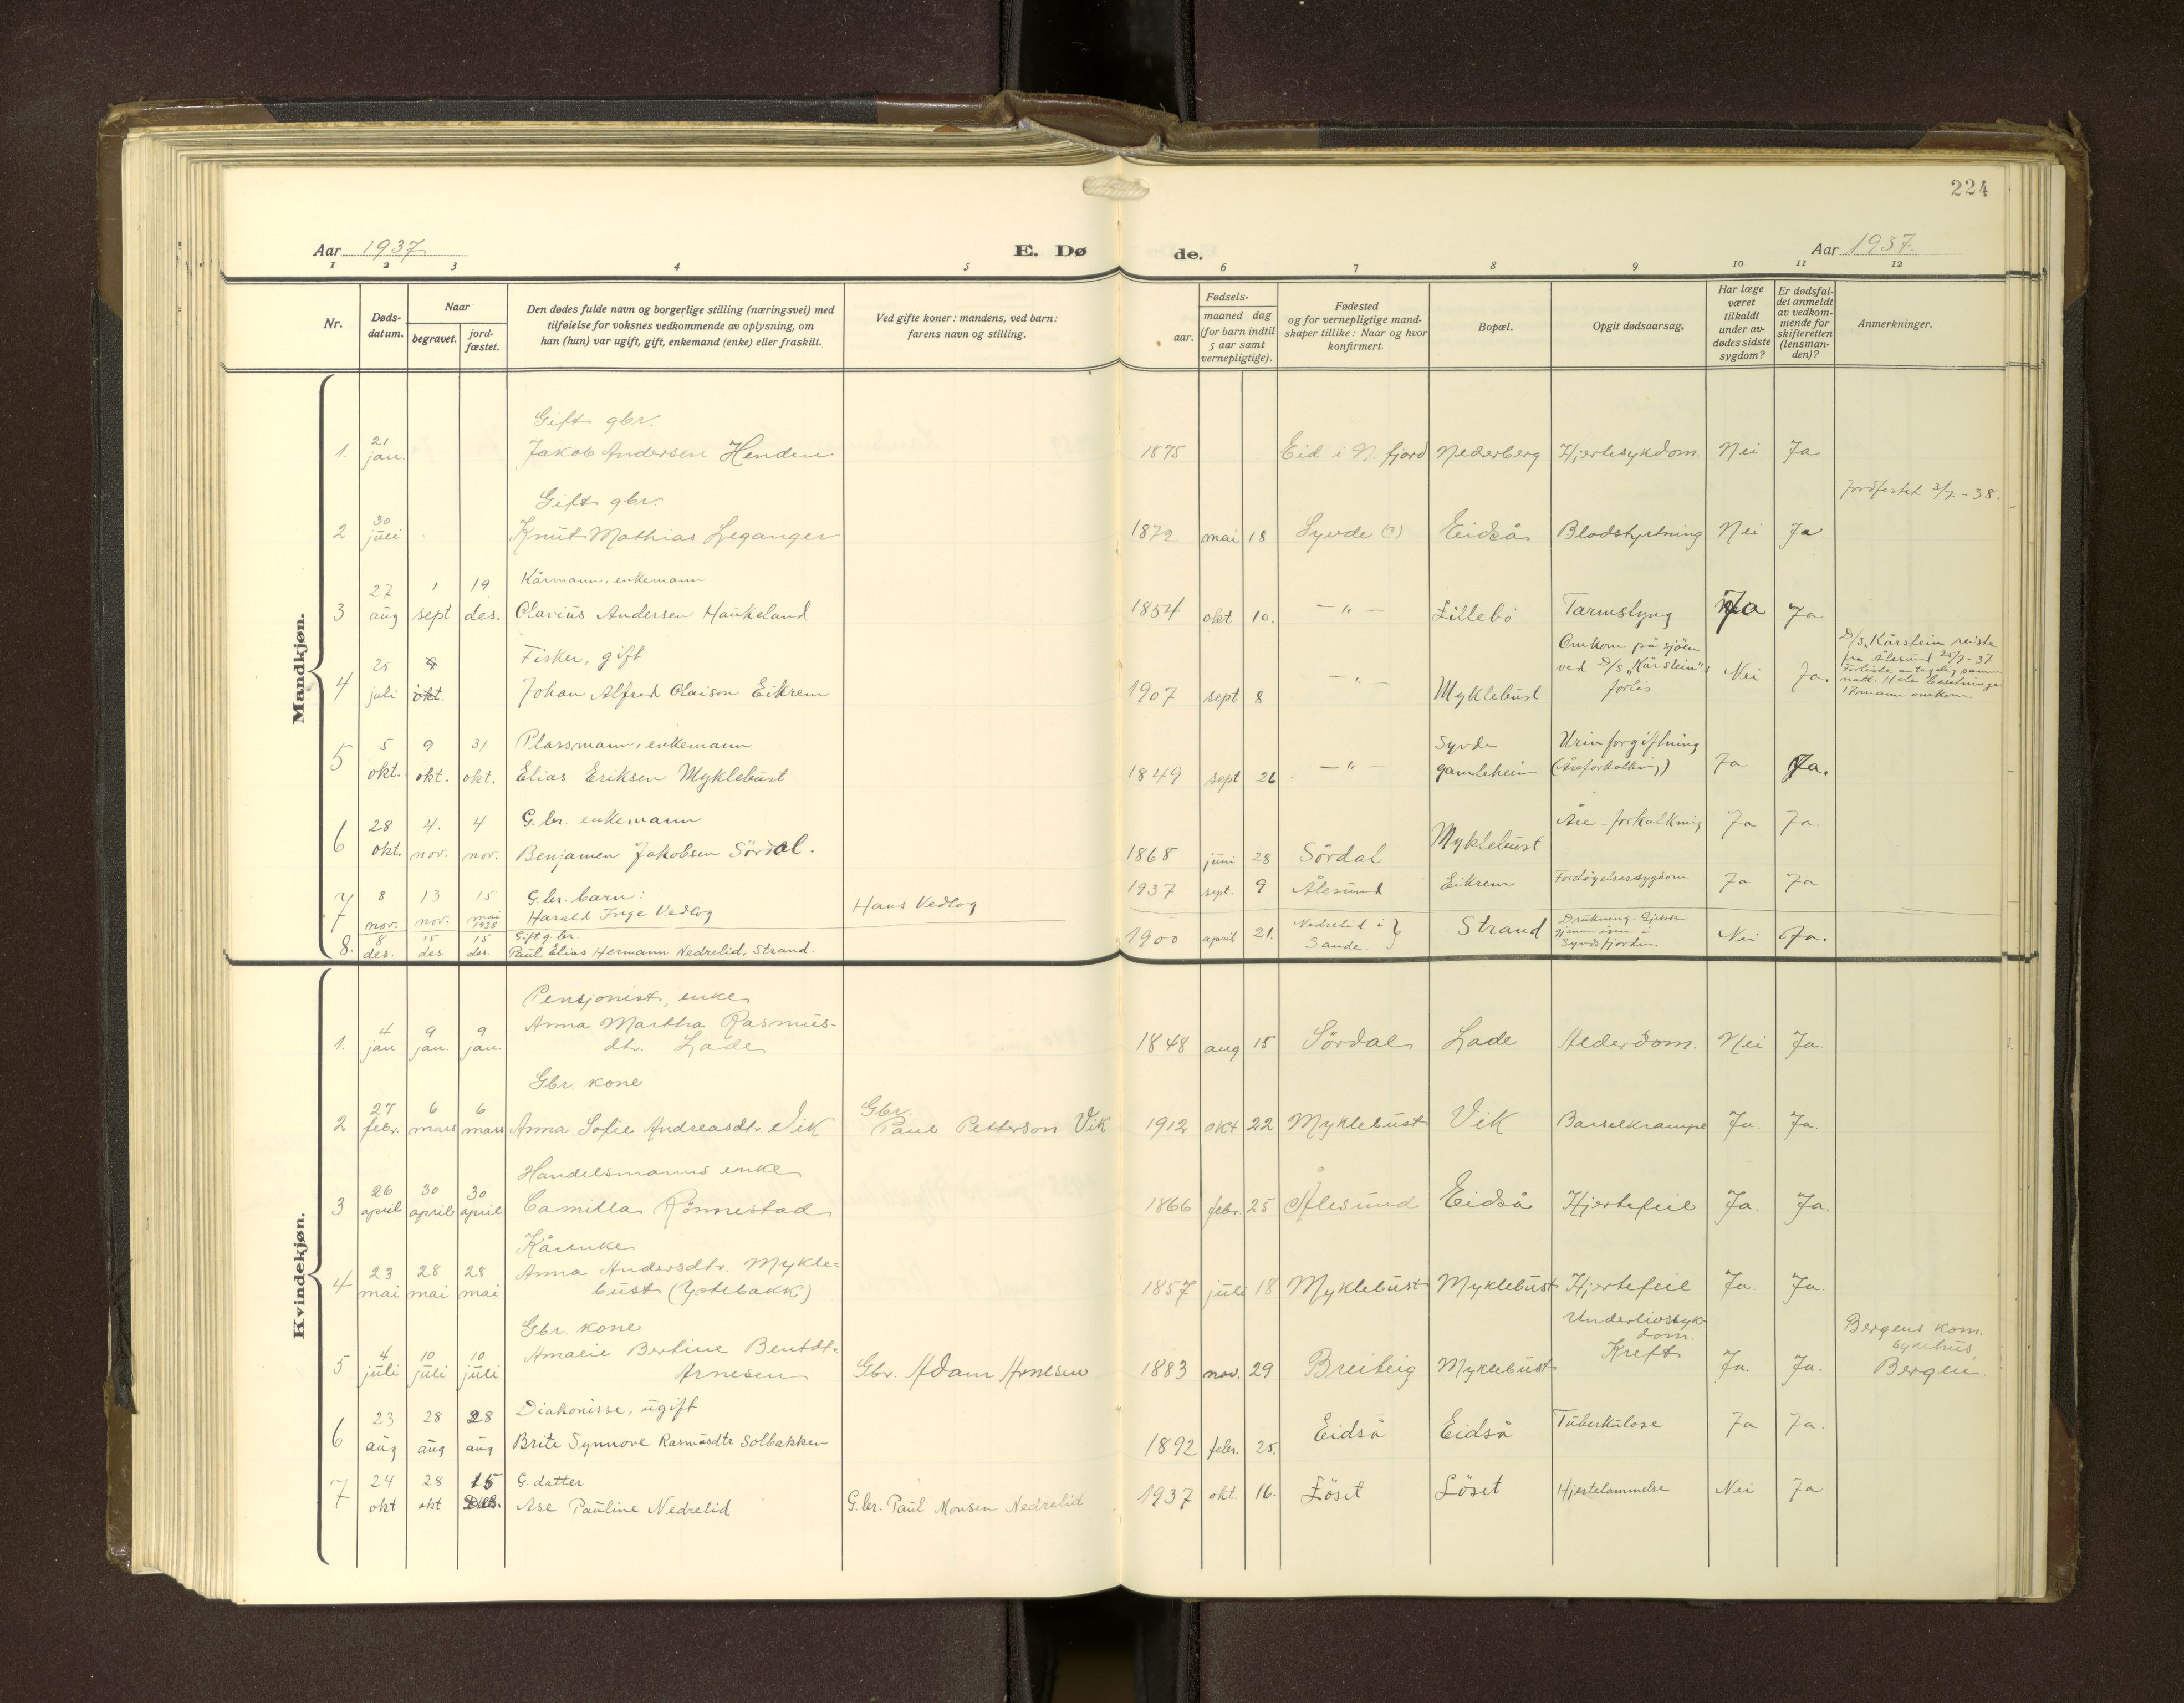 224
Aar 1937 E. Dø de. Aar 1937
1 2 3 4 5 6 7 8 9 10 11 12
Nr.
Døds-datum.
Naar
begravet.
jord-fæstet.
Den dødes fulde navn og borgerlige stilling (næringsvei) med
tilføielse for voksnes vedkommende av oplysning, om
han (hun) var ugift, gift, enkemand (enke) eller fraskilt.
Ved gifte koner: mandens, ved barn:
farens navn og stilling.
Fødsels-
aar.
maaned dag
(for barn indtil
5 aar samt
vernepligtige).
Fødested
og for vernepligtige mand-
skaper tillike: Naar og hvor
konfirmert.
Bopæl.
Opgit dødsaarsag.
Har læge
været
tilkaldt
under av-
dødes sidste
sygdom?
Er dødsfal-
det anmeldt
av vedkom-
mende for
skifteretten
(lensman-
den)?
Anmerkninger.
Mandkjøn.
Gift gbr.
1. 21 jan. Jakob Andersen Henden 1875 Eid i N. fjord Nederberg Hjertesykdom. Nei Ja
Gift gbr. Jordfestet 3/7-38.
2 30 juli Knut Mathias Leganger 1872 mai 18 Syvde (?) Eidså Blodstyrtning Nei Ja
Kårmann, enkemann
3 27 aug 1 sept 19 des. Olavius Andersen Haukeland 1854 okt 10. —"— Lillebö Tarmslyng Ja Ja
Fisker, gift
4 25 juli okt. Johan Alfred Olaison Eikrem 1907 sept 8 —"— Myklebust
Omkom på sjöen
ved D/s "Kårstein"s
forlis
Nei Ja.
D/s "Kårstein reiste
fra Ålesund 25/7-37
Forliste antagelig samme
natt. Hele besetningen
17 mann omkom.
Plassmann, enkemann
5 5 okt. 9 okt. 31 okt. Elias Eriksen Myklebust 1849 sept 26 —"—
Syvde
gamleheim
Urinforgiftning
(Åreforkalkning)
Ja Ja.
G.br. enkemann
6 28 okt. 4. nov. 4 nov. Benjamen Jakobsen Sördal. 1868 juni 28 Sördal Myklebust Åre-forkalkning Ja Ja.
G.br. barn:
7 8 nov. 13 nov. 15 mai 1938 Harald Inge Vedlog Hans Vedlog 1937 sept. 9 Ålesund Eikrem Fordøyelsessygdom Ja Ja
Gift g.br.
8. 8 des. 15 des. 15 des. Paul Elias Hermann Nedrelid, Strand. 1900 april 21.
Nedrelid i
Sande.
Strand
Drukning.
gjennom isen i
Syvdsfjorden.
Nei Ja.
Kvindekjøn.
Pensjonist, enke
1. 4 jan 9 jan. 9 jan. Anna Martha Rasmus-
dtr. Lade 1848 aug 15 Sördal Lade Alderdom. Nei Ja.
Gbr. kone
2 27 febr. 6 mars 6 mars Anna Sofie Andreasdtr. Vik Gbr. Paul Petterson Vik 1912 okt 22 Myklebust Vik Barselkrampe Ja. Ja.
Handelsmanns enke
3 26 april 30 april 30 april Camilla Rönnestad 1866 febr. 25 Ålesund Eidså Hjertefeil Ja. Ja.
Kårenke
4 23 mai 28 mai 28 mai Anna Andersdtr. Mykle-
bust (Ystebakk) 1857 juli 18 Myklebust Myklebust Hjertefeil Ja. Ja.
Gbr. kone
5 4 juli 10 juli 10 juli Amalie Bertine Bentdt.
Arnesen Gbr. Adam Arnesen 1883 nov. 29 Breiteig Myklebust
Underlivssyk-
dom.
Kreft
Ja. Ja.
Bergens kom.
sykehus,
Bergen.
Diakonisse, ugift
6 23 aug 28 aug 28 aug Brite Synnove Rasmusdtr Solbakken 1892 febr. 25. Eidså Eidså Tuberkulose Ja Ja.
G. datter
7 24 okt 28 okt 15 Des. Ase Pauline Nedrelid G.br. Paul Monsen Nedrelid 1937 okt. 16. Löset Löset Hjertelammelse Nei Ja